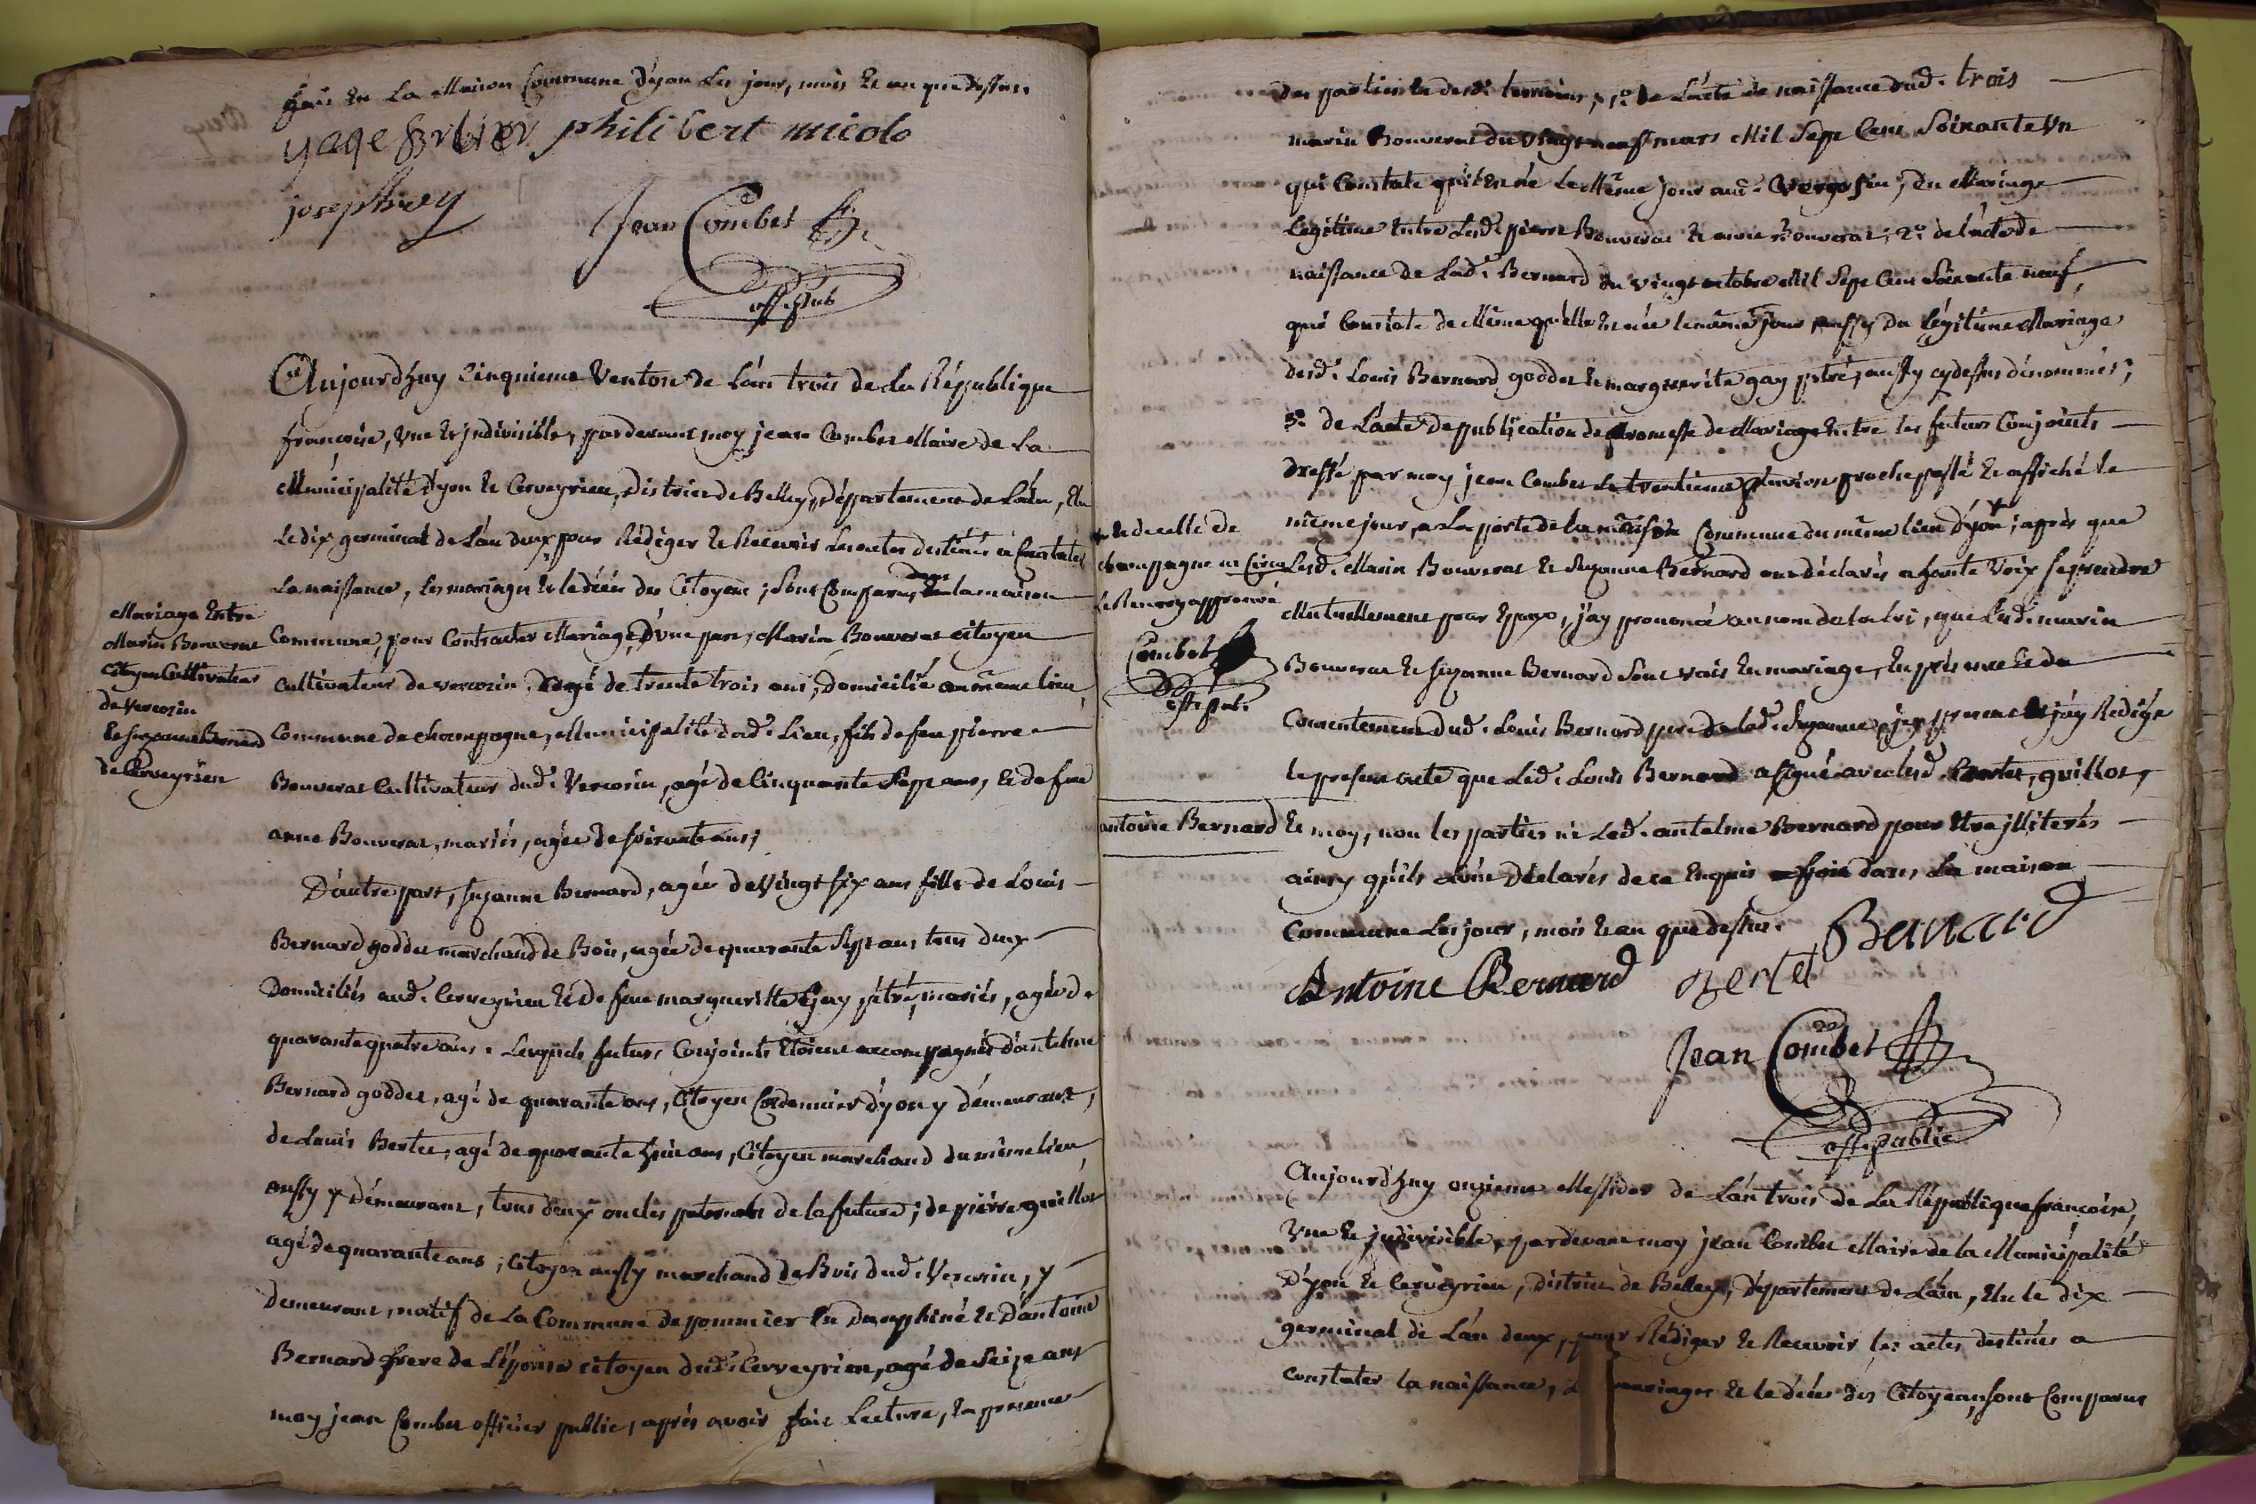 fait en La Maison Commune d'yon Les jour, mois et an que dessus
philibert micolo
joseph
Jean Combet
off. pub
Aujourd'huy Cinquieme Ventose de L'an trois de La République
françoise, Une et jndivisible, pardevant moy jean Combet Maire de La
Municipalité d'yon et Cerveyrieu, district de Belley, département de L'ain, Elu
Le dix germinal de L'an deux pour Rédiger et Recevoir Les actes destinés a Constater
La naissance, Les mariages et le décès des Citoyens; sont Comparus dans la maison
Mariage Entre
Marin Bouverat
Citoyen Cultivateur
de Vercosin
et suzanne Bernard
de Cerveyrieu
Commune, pour Contracter Mariage, D'une part, Marin Bouverat citoyen
Cultivateur de vercosin, agé de trente trois ans, domicilié au même lieu
Commune de champagne, Municipalité dud. Lieu, fils de feu pierre
Bouverat Cultivateur dud. Vercosin, agé de Cinquante Sept ans, et de feue
anne Bouverat, mariés, agée de soixante ans;
D'autre part, suzanne Bernard, agée de Vingt six ans fille de Louis
Bernard goddet marchand de Bois, agée de quarante Sept ans tous deux
Domiciliés aud. Cerveyrieu et de feue margueritte Gay, pétré, mariés, agée de
quarante quatre ans. Lesquels futurs Conjoints Etoient accompagnés d'antelme
Bernard goddet, agé de quarante ans, Citoyen Cordonnier d'yon y démeurant,
de Louis Bertet, agé de quarante huit ans, Citoyen marchand du même lieu
aussy y démeurant, tous deux oncles paternels de la future; de pierre guillot
agé de quarante ans, Citoyen aussy marchand de Bois dud. Vercosin, y
demeurant, natif de La Commune de pommier En Dauphiné et D'antoine
Bernard frere de L'épouse citoyen dud. Cerveyrieu, agé de Seize ans
moy jean Combet officier public, après avoir fait Lecture, En presence
des parties et desd. temoins, 1.º de L'acte de naissance dud. trois
marin Bouverat du Vingt neuf mars Mil Sept Cent Soixante Un
qui Constate qu'il Est né Le Même jour aud. Vercosin, du Mariage
Legitime Entre Lesd. pierre Bouverat et anne Bouverat; 2.º de l'acte de
naissance de Lad. Bernard du vingt octobre Mil Sept Cent Soixante neuf
qui Constate de Même qu'elle Est née le même jour aussy du légitime Mariage
desd. Louis Bernard goddet et margueritte gay pétré, aussy cydessus dénommés;
3.º de L'acte de publication de promesse de Mariage Entre les futurs Conjoints
dressé par moy jean Combet Le trentieme pluviose proche passé et affiché le
même jour, a La porte de la maison Commune du même lieu d'yon; après que
et de celle de
champagne
Le Renvoy approuvé
Combet
off. pub.
Lesd. Marin Bouverat et Suzanne Bernard ont déclarés a haute Voix se prendre
Mutuellement pour Epoux, j'ay prononcé au nom de la loi, que Lesd. marin
Bouverat et suzanne Bernard sont unis En mariage, En présence et du
Consentement dud. Louis Bernard pere de lad. suzanne, et j'ay Redigé
le present acte que Led. Louis Bernard a signé avec lesd. Bertet, guillot,
antoine Bernard et moy, non les parties ni Led. antelme Bernard pour Etre jlliterés
ainsy qu'ils ont Déclarés de ce Enquis fait dans La maison
Commune Les jour, mois et an que dessus.
Bernard
Antoine Bernard Bertet
Jean Combet
off. public
Aujourd'huy onzieme Messidor de L'an trois de La République françoise,
Une et jndivisible, pardevant moy jean Combet Maire de la Municipalité
D'yon et Cerveyrieu, District de Belley, département de L'ain, Elu le dix
germinal de L'an deux, pour Rédiger et Recevoir les actes destinés a
constater la naissance, mariages et le décès des Citoyens, sont Comparus